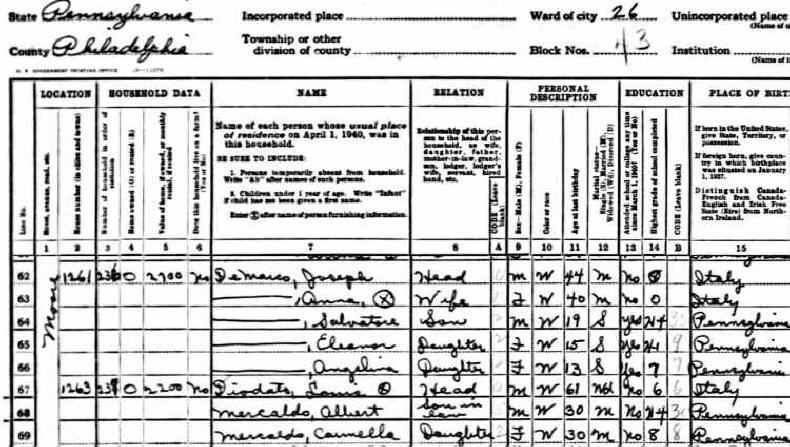 State Pennsylvania Incorporated place Ward of city 26 Unincorporated place
(Name of
County Philadelphia Township or other division of county Block Nos. 43 Institution
(Name of
U. S. GOVERNMENT PRINTING OFFICE
LOCATION HOUSEHOLD DATA NAME RELATION PERSONAL DESCRIPTION EDUCATION PLACE OF BIRT
Line No.
Street, avenue, road, etc.
House number (in cities and towns)
Number of household in order of visitation
Home owned (O) or rented (R)
Value of home, if owned, or monthly rental, if rented
Does this household live on a farm? (Yes or No)
Name of each person whose usual place of residence on April 1, 1940, was in this household.
BE SURE TO INCLUDE:
1. Persons temporarily absent from household. Write "Ab" after names of such persons.
2. Children under 1 year of age. Write "Infant" if child has not been given a first name.
Enter ⓧ after name of person furnishing information.
Relationship of this person to the head of the household, as wife, daughter, father, mother-in-law, grandson, lodger, lodger's wife, servant, hired hand, etc.
CODE (Leave blank)
Sex—Male (M), Female (F)
Color or race
Age at last birthday
Marital status— Single (S), Married (M), Widowed (Wd), Divorced (D)
Attended school or college any time since March 1, 1940? (Yes or No)
Highest grade of school completed
CODE (Leave blank)
If born in the United States, give State, Territory, or possession.
If foreign born, give country in which birthplace was situated on January 1, 1937.
Distinguish Canada-French from Canada-English and Irish Free State (Eire) from Northern Ireland.
1 2 3 4 5 6 7 8 A 9 10 11 12 13 14 B 15
62 Moore 1261 236 O 2700 No DeMarco, Joseph Head M W 44 M No 0 Italy
63 ———, Anna, ⓧ Wife F W 40 M No 0 Italy
64 ———, Salvatore Son M W 19 S Yes H4 Pennsylvania
65 ———, Eleanor Daughter F W 15 S Yes H1 9 Pennsylvania
66 ———, Angelina Daughter F W 13 S Yes 7 7 Pennsylvania
67 1263 237 O 2200 No Diodato, Louis ⓧ Head M W 61 Wd No 6 6 Italy
68 Mercaldo, Albert Son in law M W 30 M No H4 30 Pennsylvania
69 Mercaldo, Carmella Daughter F W 30 M No 8 8 Pennsylvania